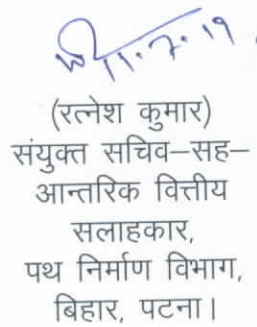 11.7.19
(रत्नेश कुमार)
संयुक्त सचिव–सह–
आन्तरिक वित्तीय
सलाहकार,
पथ निर्माण विभाग,
बिहार, पटना।